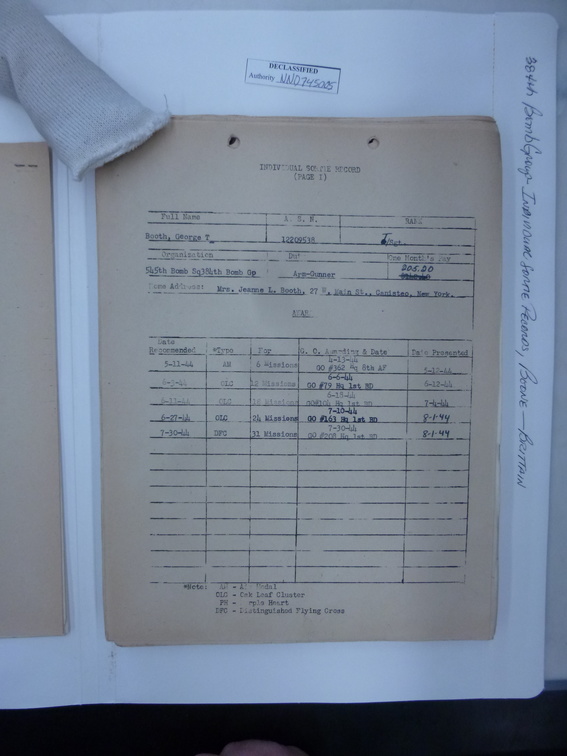 DECLASSIFIED
Authority NND745005
384th Bomb Group - Individual Sortie Records, Boone - Brittain
INDIVIDUAL SORTIE RECORD
(PAGE I)
Full Name A. S. N. RANK
Booth, George T. 12209538
Organization Duty One Month's Pay
205.20
545th Bomb Sq 384th Bomb Gp Arm-Gunner
Home Address: Mrs. Jeanne L. Booth, 27 W. Main St., Canisteo, New York.
AWARD
Date
Recommended *Type For G. O. Awarding & Date Date Presented
4-13-44
5-11-44 AM 6 Missions GO #362 Hq 8th AF 5-12-44
6-6-44
6-3-44 OLC 12 Missions GO #79 Hq 1st BD 6-12-44
6-15-44
OLC Missions GO#104 Hq 1st BD 7-4-44
7-10-44
6-27-44 OLC 24 Missions GO #163 Hq 1st BD 8-1-44
7-30-44
7-30-44 DFC 31 Missions GO Hq 1st BD 8-1-44
*Note: AM - Air Medal
OLC - Oak Leaf Cluster
PH - Purple Heart
DFC - Distinguished Flying Cross